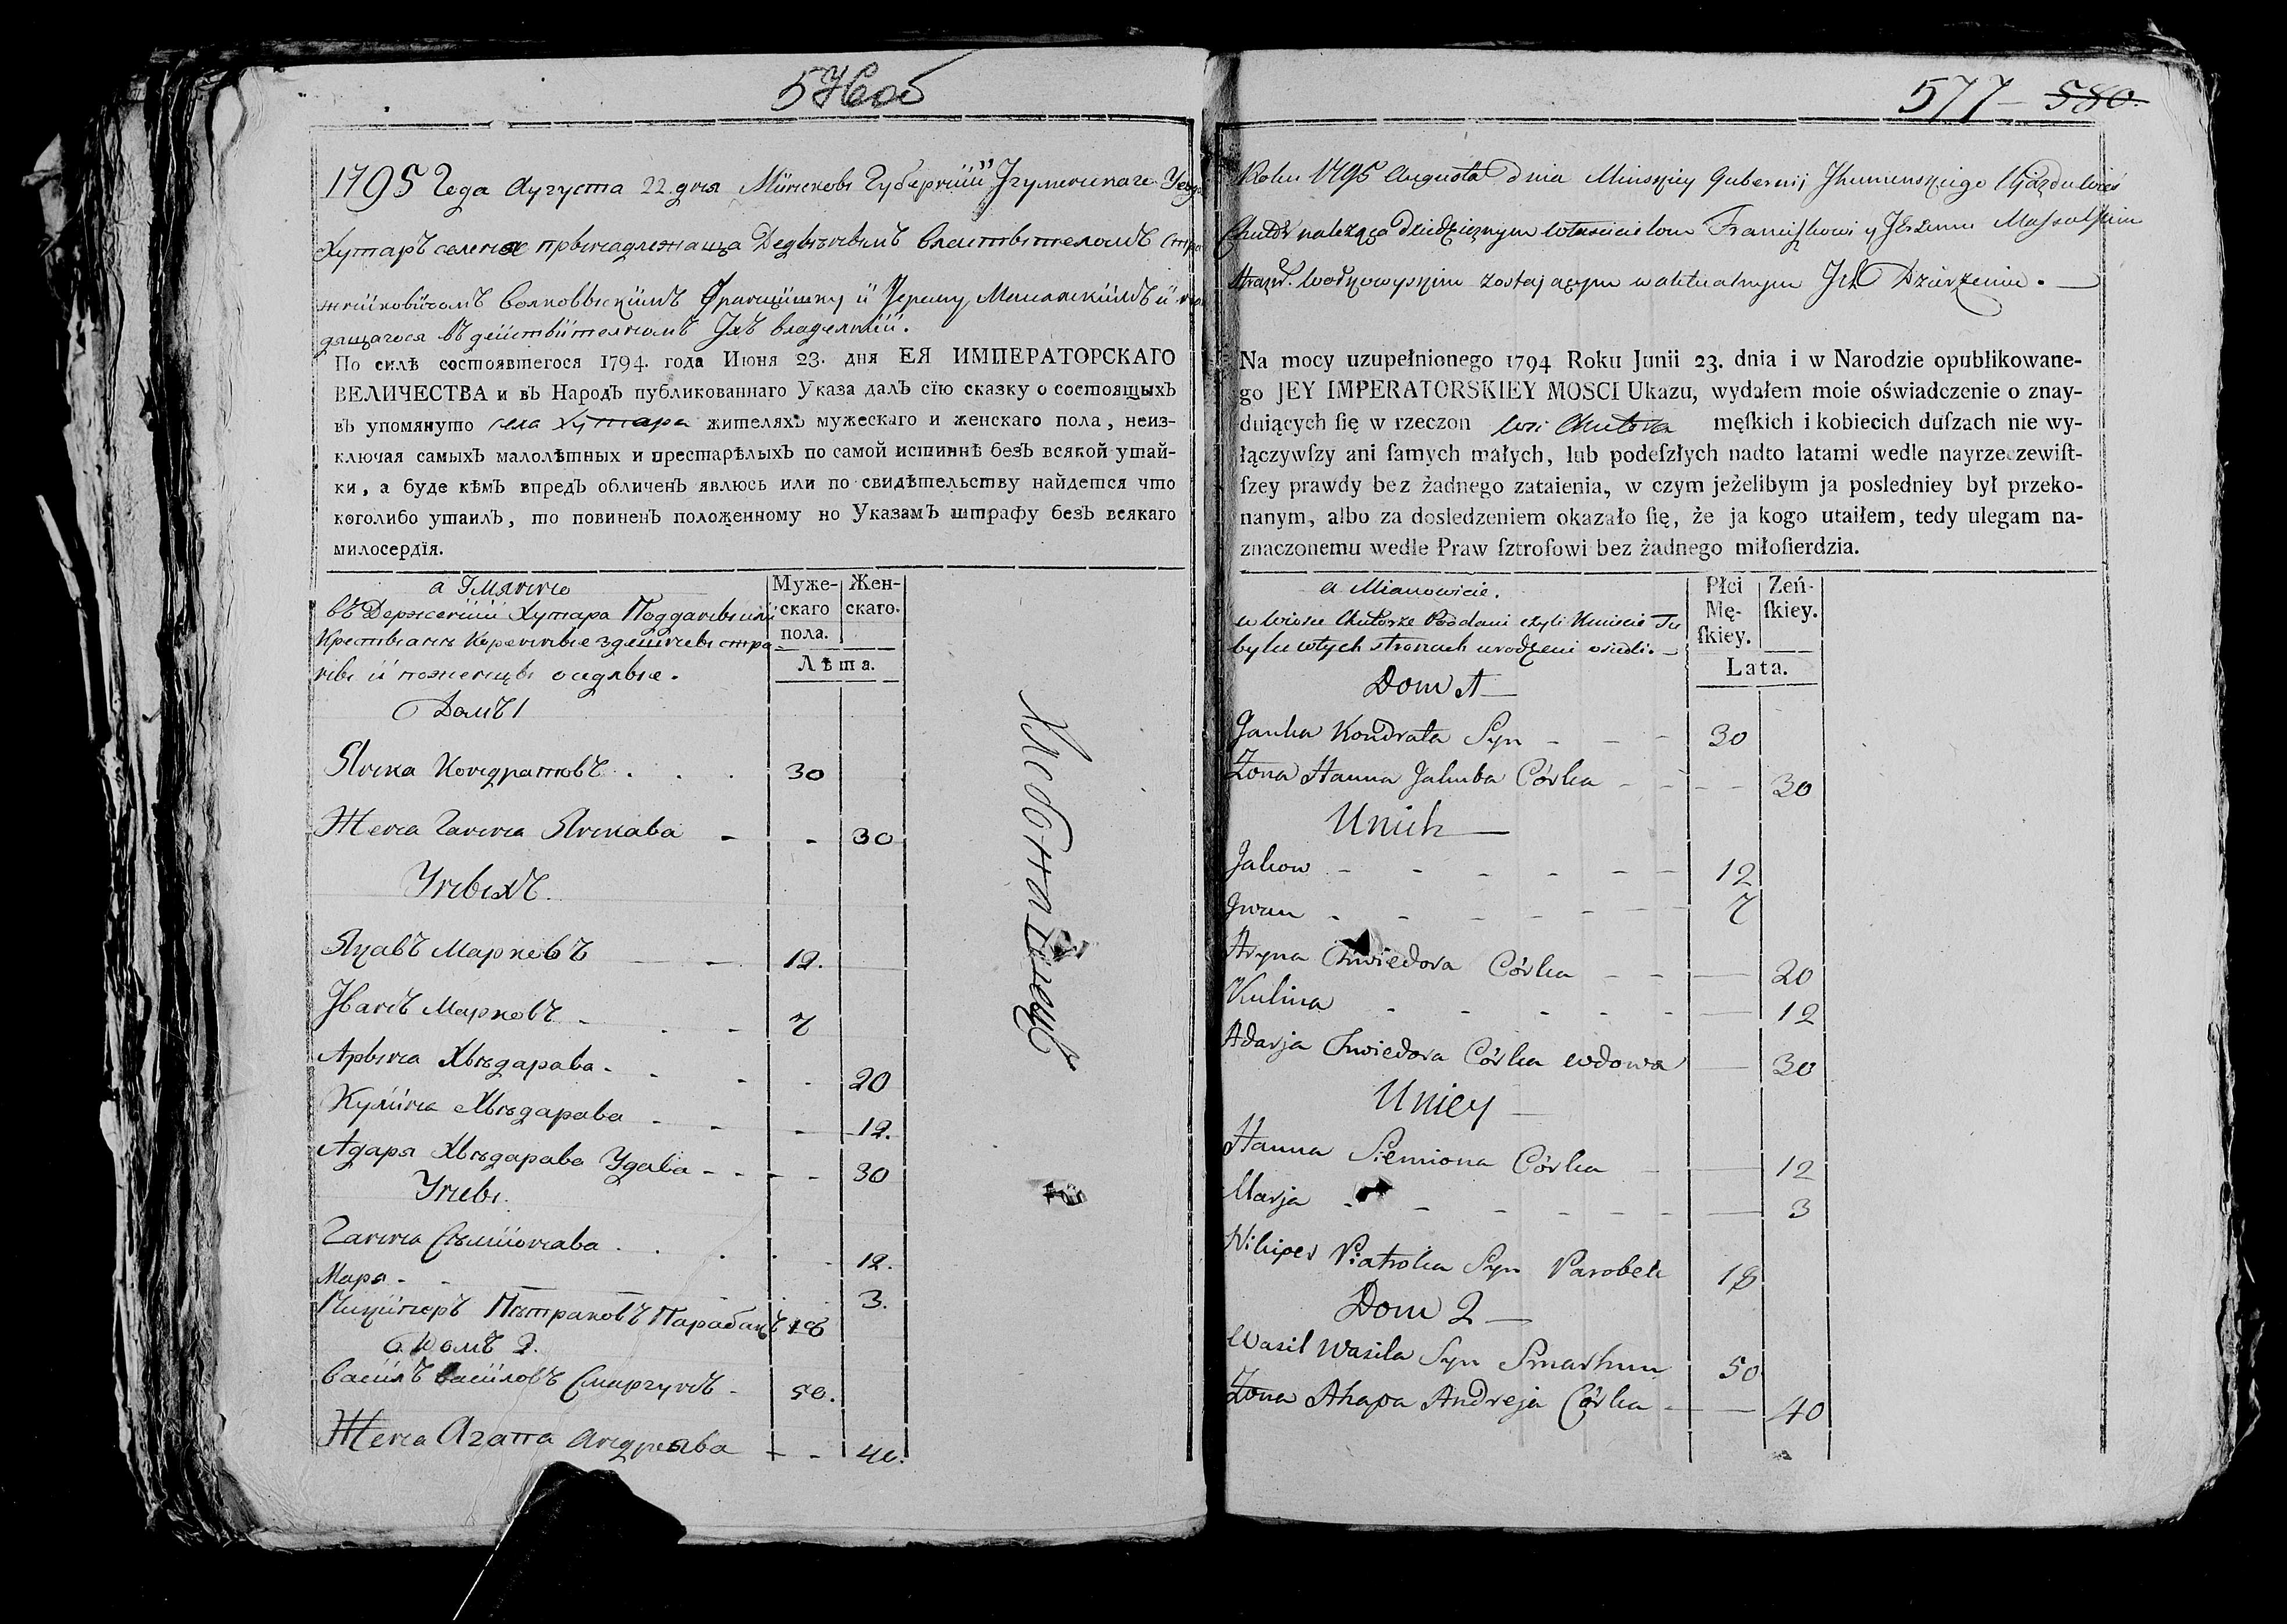 576 об
1795 Года Августа 22 дня Мински Губернии Игуменскаго Уезда
Хутаръ селеня прынадлежаща Дедычнымъ властытеломъ
Волковыскимъ Францишку и Ярему Масалскимъ и
дящагося въ действителномъ Ихъ владении.
По силѣ состоявшегося 1794. года Июня 23. дня ЕЯ ИМПЕРАТОРСКАГО
ВЕЛИЧЕСТВА и въ Народъ публикованнаго Указа далъ сїю сказку о состоящыхъ
въ упомянуто села Хутара жителяхъ мужескаго и женскаго пола, неиз-
ключая самыхъ малолѣтных и престарѣлыхъ по самой истиннѣ безъ всякой утай-
ки, а буде кѣмъ впредъ обличенъ явлюсь или по свидѣтельству найдется что
коголибо утаилъ, то повиненъ положенному но Указамъ штрафу безъ всякаго
милосердїя.
а Имянно
въ Держении Хутара Подданныи
Крестяне Коренные здешневы стра-
ны и поженцы оседлые.
Муже-
скаго
пола.
Жен-
скаго.
Лѣта.
Домъ 1
Янка Кондратовъ 30
Жена Ганна Янкава 30
Уныхъ
Яцавъ Марковъ 12.
Иванъ Марковъ 7
Арына Хвѣдарава 20
Кулина Хвѣдарава 12.
Адаря Хвѣдарава Удава 30
Уные
Ганна Сѣмионава 12.
Маря 3.
Ничипоръ Пѣтраковъ Парабакъ 18
Домъ 2.
Василъ Василовъ Смаргунъ 50.
Жена Агапа Андреява 40.
577 - 580.
Roku 1795 Augusta dnia Minskiey Gubernij Jhumenskiego Ujazdu Wieś
Chutor należąca Dziedzicznym właścicielom Franciszkowi y Jeremu Massalskim
Straż. Wołkowyskim zostającym w aktualnym Ich Dzierżeniu.
Na mocy uzupełnionego 1794 Roku Junii 23. dnia i w Narodzie opublikowane-
go JEY IMPERATORSKIEY MOSCI Ukazu, wydałem moie oświadczenie o znay-
duiących ſię w rzeczon wsi Chutora męſkich i kobiecich duſzach nie wy-
łączywſzy ani ſamych małych, lub podeſzłych nadto latami wedle nayrzeczewiſt-
ſzey prawdy bez żadnego zataienia, w czym jeżelibym ja posledniey był przeko-
nanym, albo za dosledzeniem okazało ſię, że ja kogo utaiłem, tedy ulegam na-
znaczonemu wedle Praw ſztrofowi bez żadnego miłoſierdzia.
a Mianowicie.
w Wiosce Chutorze Poddani czyli Kmiecie Tu
byli w tych stronach urodzeni osiedli.
Płci
Mę-
ſkiey.
Zeń-
ſkiey.
Lata.
Dom 1
Janka Kondrata Syn 30
Żona Hanna Jakuba Córka 30
Unich
Jakow 12
Jwan 7
Aryna Chwiedora Córka 20
Kulina 12
Adarja Chwiedora Córka wdowa 30
Uniey
Hanna Siemiona Córka 12
Marja 3
Nikiper Piatroka Syn Parobek 18
Dom 2
Wasil Wasila Syn Smarhun 50
Żona Ahapa Andreja Córka 40